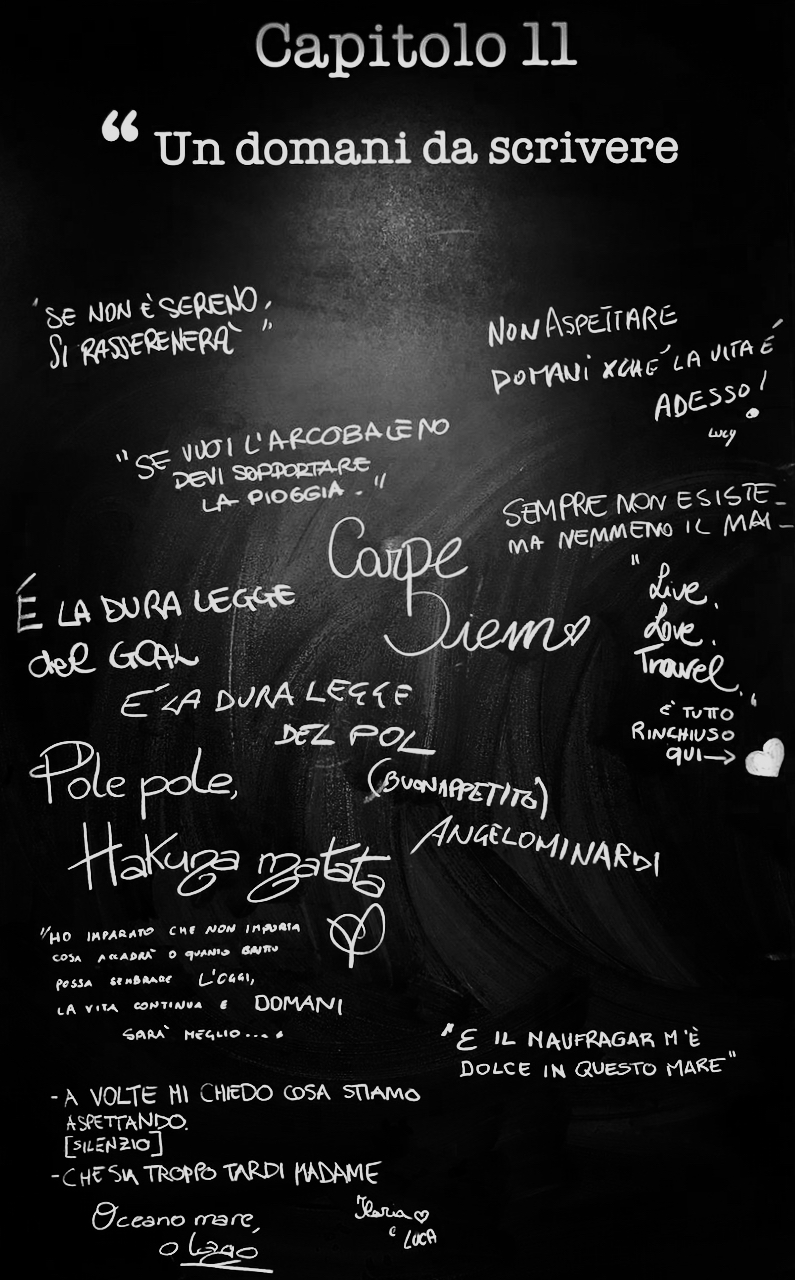 Capitolo 11
“ Un domani da scrivere
'SE NON È SERENO,
SI RASSERENERÀ"
NON ASPETTARE
DOMANI XCHÉ LA VITA É
ADESSO!
Lucy
"SE VUOI L'ARCOBALENO
DEVI SOPPORTARE
LA PIOGGIA."
SEMPRE NON ESISTE_
MA NEMMENO IL MAI_
Carpe
Diem
"Live.
Love.
Travel."
È TUTTO
RINCHIUSO
QUI→
É LA DURA LEGGE
del GOAL
E' LA DURA LEGGE
DEL POL
Pole pole,
Hakuna matata
(BUONAPPETITO)
ANGELOMINARDI
"HO IMPARATO CHE NON IMPORTA
COSA ACCADRÀ O QUANTO BRUTTO
POSSA SEMBRARE L'OGGI,
LA VITA CONTINUA E DOMANI
SARA' MEGLIO....
"E IL NAUFRAGAR M'È
DOLCE IN QUESTO MARE"
- A VOLTE MI CHIEDO COSA STIAMO
ASPETTANDO.
[SILENZIO]
- CHE SIA TROPPO TARDI MADAME
Oceano mare,
o lago
Ilaria
e LUCA